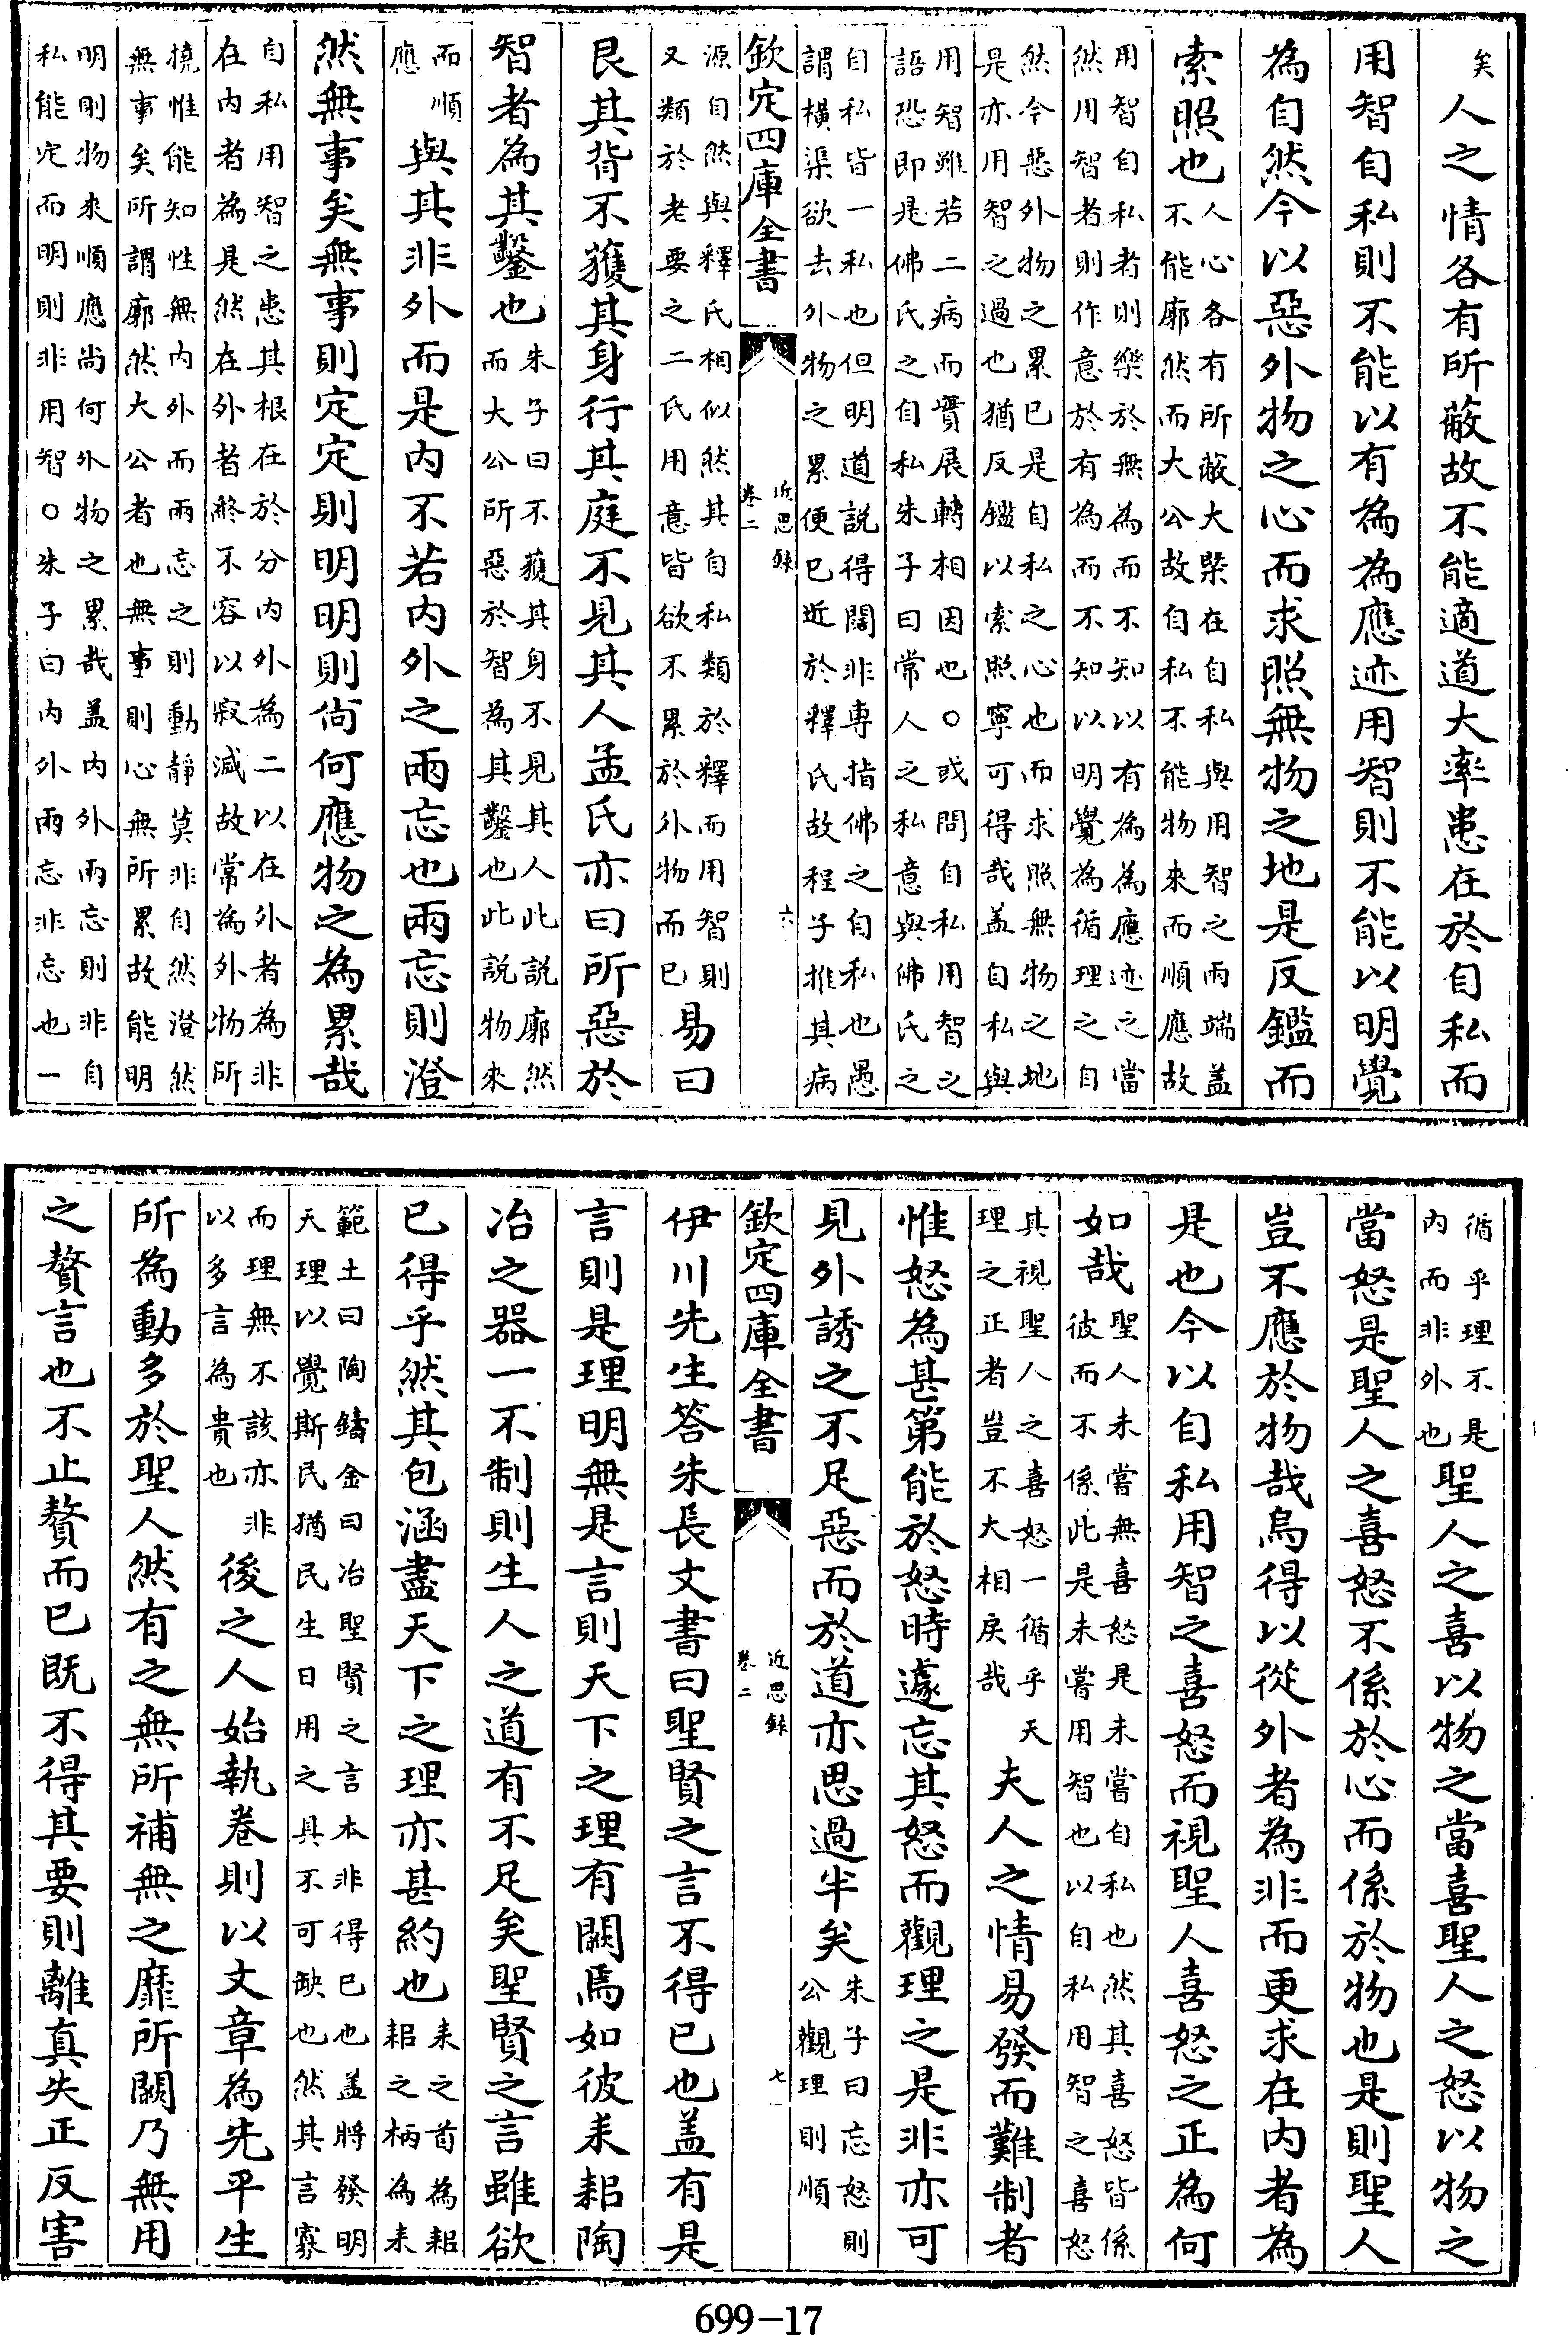 矣人之情各有所蔽故不能適道大率患在於自私而
用智自私則不能以有為為應迹用智則不能以明覺
為自然今以惡外物之心而求照無物之地是反鑑而
索照也
人心各有所蔽大槩在自私與用智之兩端盖
不能廓然而大公故自私不能物來而順應故
用智自私者則樂於無為而不知以有為為應迹之當
然用智者則作意於有為而不知以明覺為循理之自
然今惡外物之累已是自私之心也而求照無物之地
是亦用智之過也猶反鑑以索照寧可得哉盖自私與
用智雖若二病而實展轉相因也○或問自私用智之
語恐即是佛氏之自私朱子曰常人之私意與佛氏之
自私皆一私也但明道說得闊非專指佛之自私也愚
謂橫渠欲去外物之累便已近於釋氏故程子推其病
欽定四庫全書
近思錄
卷二
六
源自然與釋氏相似然其自私類於釋而用智則
又類於老要之二氏用意皆欲不累於外物而已
易曰
艮其背不獲其身行其庭不見其人孟氏亦曰所惡於
智者為其鑿也
朱子曰不獲其身不見其人此說廓然
而大公所惡於智為其鑿也此說物來
而順
應
與其非外而是内不若内外之兩忘也兩忘則澄
然無事矣無事則定定則明明則尚何應物之為累哉
自私用智之患其根在於分内外為二以在外者為非
在内者為是然在外者終不容以寂滅故常為外物所
撓惟能知性無内外而兩忘之則動靜莫非自然澄然
無事矣所謂廓然大公者也無事則心無所累故能明
明則物來順應尚何外物之累哉盖内外兩忘則非自
私能定而明則非用智○朱子曰内外兩忘非忘也一
循乎理不是
内而非外也
聖人之喜以物之當喜聖人之怒以物之
當怒是聖人之喜怒不係於心而係於物也是則聖人
豈不應於物哉烏得以從外者為非而更求在内者為
是也今以自私用智之喜怒而視聖人喜怒之正為何
如哉
聖人未嘗無喜怒是未嘗自私也然其喜怒皆係
彼而不係此是未嘗用智也以自私用智之喜怒
其視聖人之喜怒一循乎天
理之正者豈不大相戾哉
夫人之情易發而難制者
惟怒為甚第能於怒時遽忘其怒而觀理之是非亦可
見外誘之不足惡而於道亦思過半矣
朱子曰忘怒則
公觀理則順
欽定四庫全書
近思錄
卷二
七
伊川先生答朱長文書曰聖賢之言不得已也盖有是
言則是理明無是言則天下之理有闕焉如彼耒耜陶
冶之器一不制則生人之道有不足矣聖賢之言雖欲
已得乎然其包涵盡天下之理亦甚約也
耒之首為耜
耜之柄為耒
範土曰陶鑄金曰冶聖賢之言本非得已也盖將發明
天理以覺斯民猶民生日用之具不可缺也然其言寡
而理無不該亦非
以多言為貴也
後之人始執卷則以文章為先平生
所為動多於聖人然有之無所補無之靡所闕乃無用
之贅言也不止贅而已既不得其要則離真失正反害
699-17